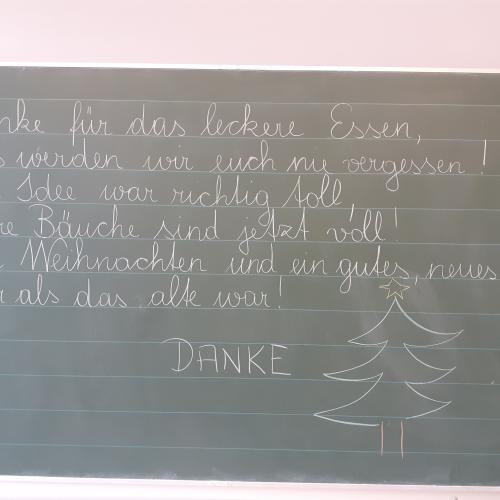 nke für das leckere Essen,
s werden wir euch nie vergessen!
Idee war richtig toll,
re Bäuche sind jetzt voll!
Weihnachten und ein gutes, neues
r als das alte war!
DANKE